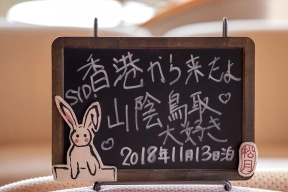 香港から来たよ
SYD.
山陰鳥取♡
大好き
2018年11月13日泊
松月